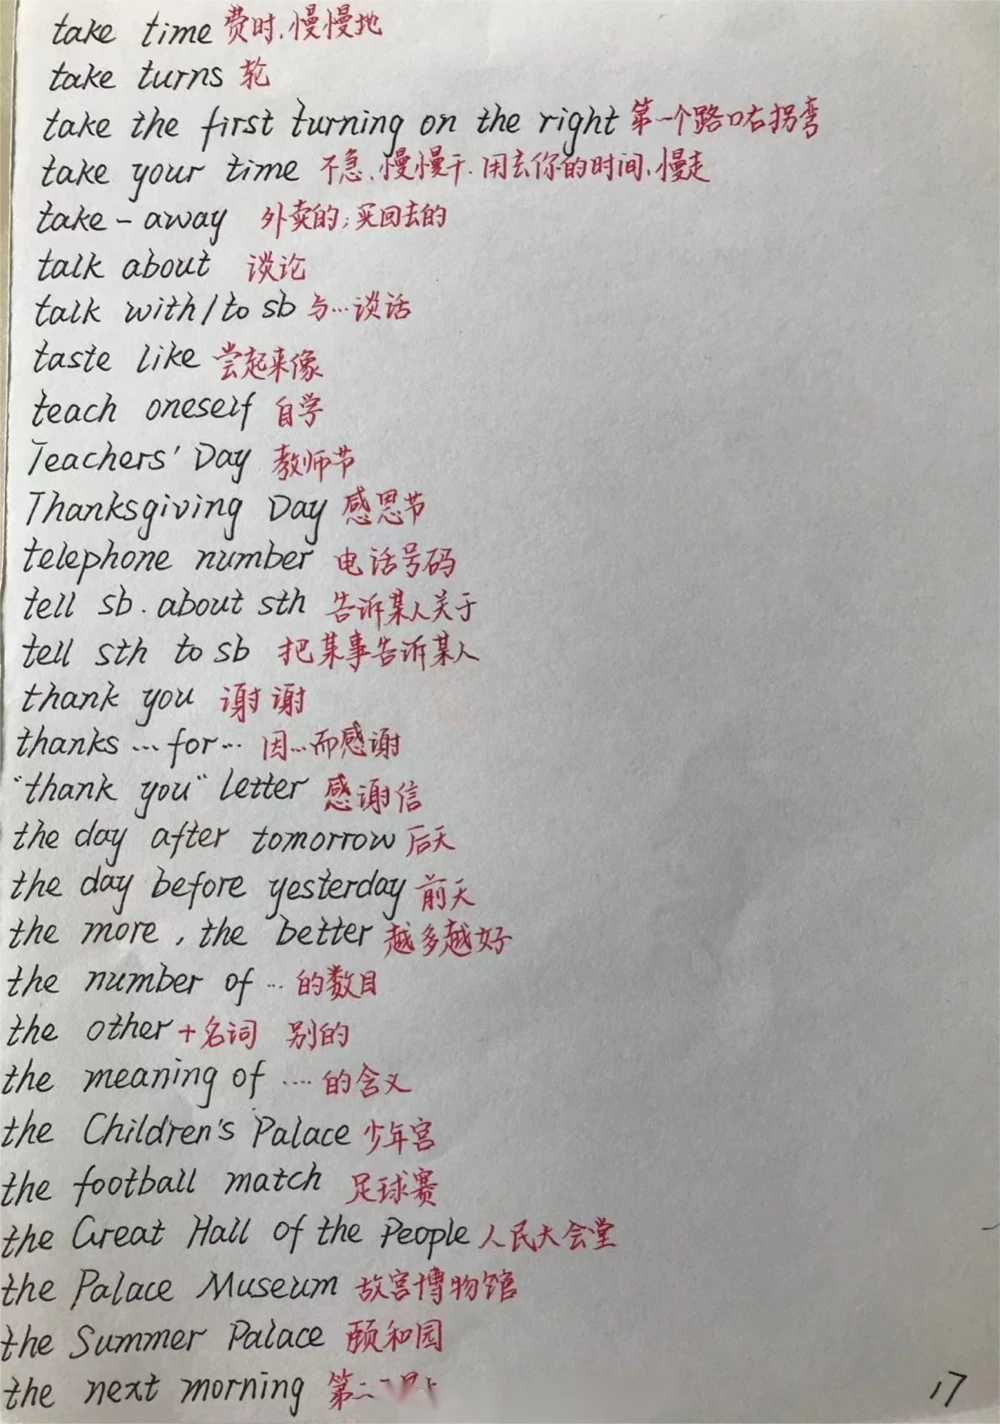 take time 费时.慢慢地
take turns 轮
take the first turning on the right 第一个路口右拐弯
take your time 不急.慢慢干.用去你的时间.慢走
take-away 外卖的;买回去的
talk about 谈论
talk with/to sb 与…谈话
taste like 尝起来像
teach oneself 自学
Teachers' Day 教师节
Thanksgiving Day 感恩节
telephone number 电话号码
tell sb. about sth 告诉某人关于
tell sth to sb 把某事告诉某人
thank you 谢谢
thanks … for… 因…而感谢
"thank you" letter 感谢信
the day after tomorrow 后天
the day before yesterday 前天
the more, the better 越多越好
the number of … 的数目
the other+名词 别的
the meaning of …. 的含义
the Children's Palace 少年宫
the football match 足球赛
the Great Hall of the People 人民大会堂
the Palace Museum 故宫博物馆
the Summer Palace 颐和园
the next morning 第二
17